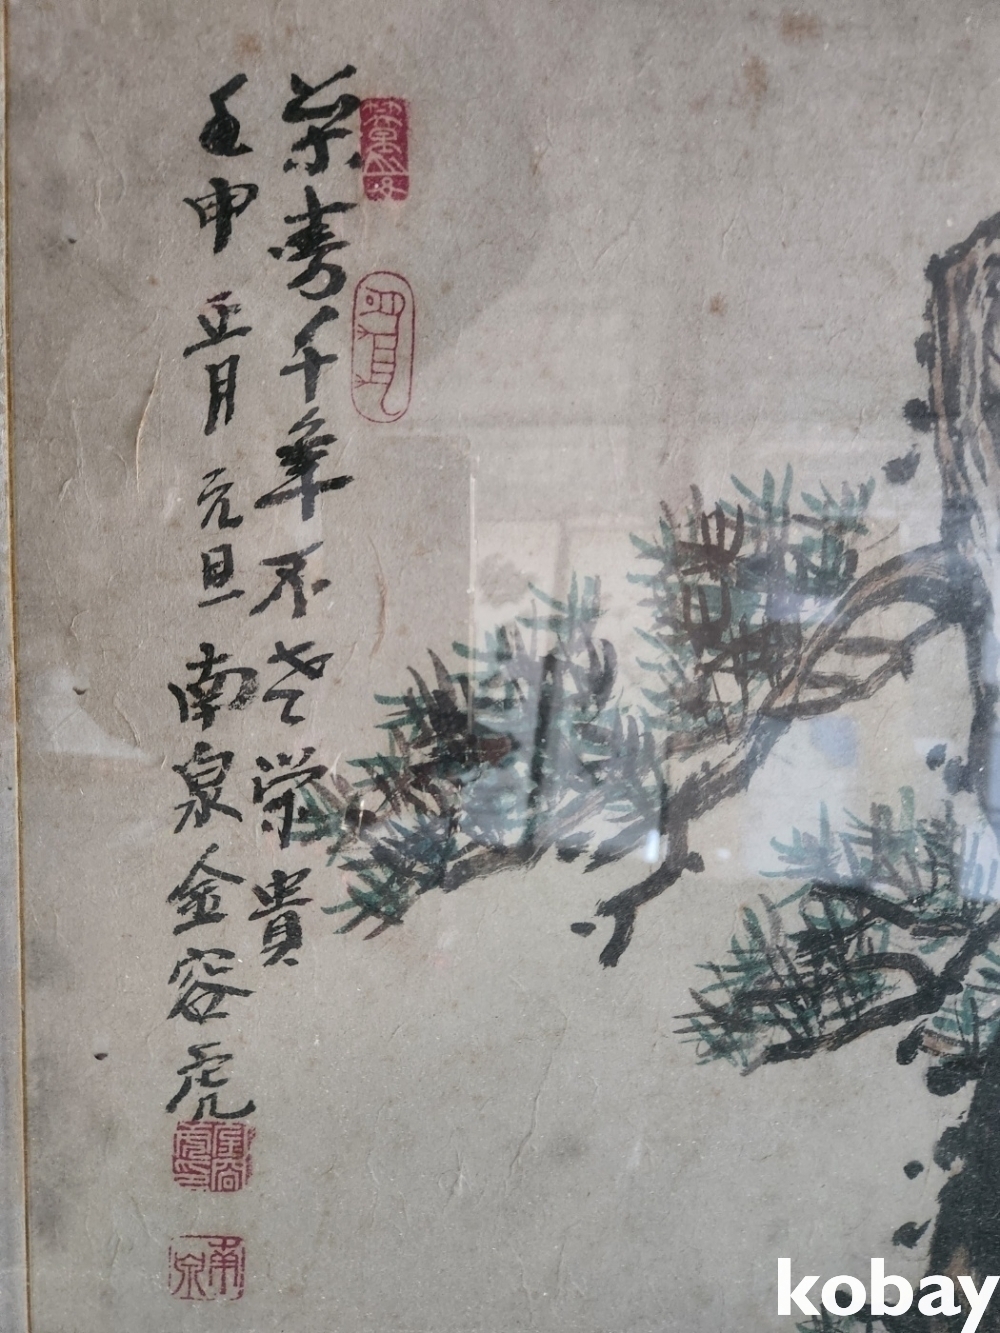 枀壽千年不老榮貴
壬申正月元旦南泉金容虎
南泉
kobay